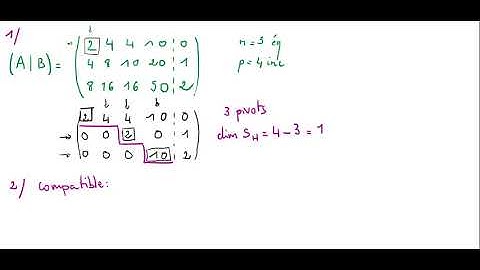 1/
(A|B) = ( 2 4 4 10 0
4 8 10 20 1
8 16 16 50 2 )
n = 3 éq
p = 4 inc
2 4 4 10 0
→ 0 0 2 0 1
→ 0 0 0 10 2
3 pivots
dim S_H = 4 - 3 = 1
2/ compatible: